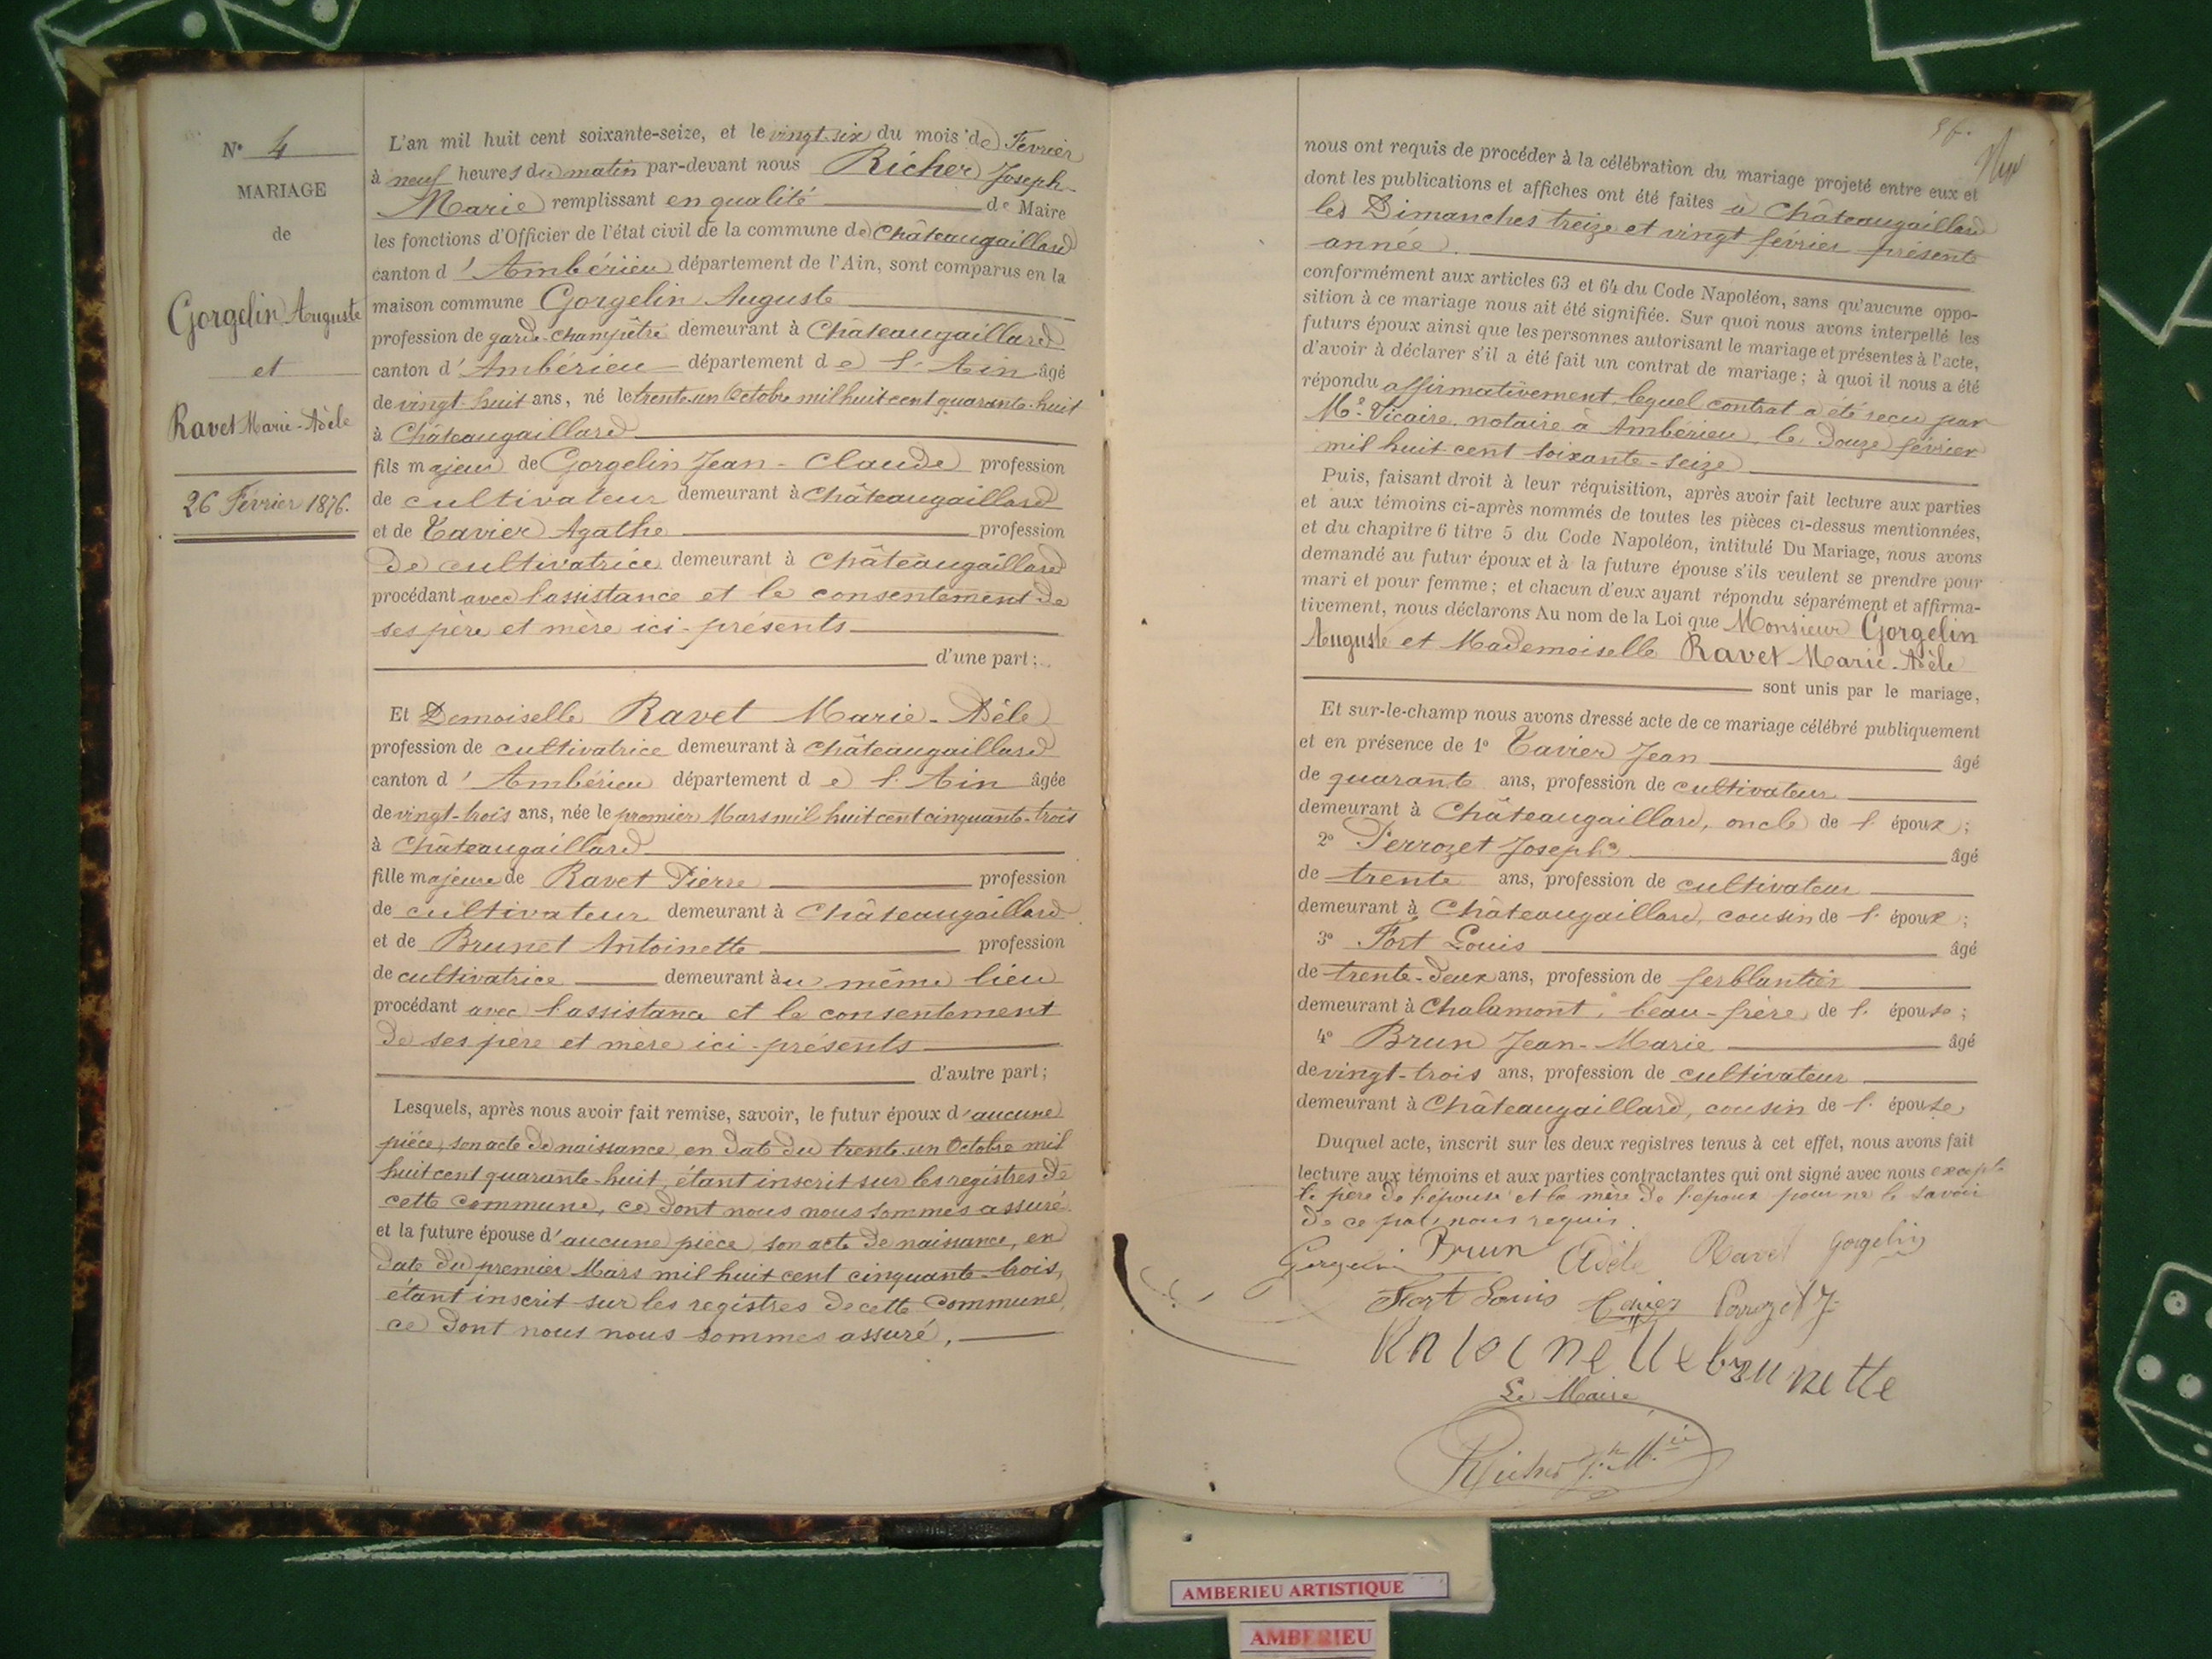 N° 4
MARIAGE
de
Gorgelin Auguste
et
Ravet Marie-Adèle
26 Février 1876.
L'an mil huit cent soixante-seize, et le vingt-six du mois de Février
à neuf heures du matin par-devant nous Richer Joseph-
Marie remplissant en qualité de Maire
les fonctions d'Officier de l'état civil de la commune de Châteaugaillard
canton d'Ambérieu département de l'Ain, sont comparus en la
maison commune Gorgelin Auguste
profession de garde-champêtre demeurant à Châteaugaillard
canton d'Ambérieu département de l'Ain âgé
de vingt-huit ans, né le trente-un Octobre mil huit cent quarante-huit
à Châteaugaillard
fils majeur de Gorgelin Jean-Claude profession
de cultivateur demeurant à Châteaugaillard
et de Tavier Agathe profession
de cultivatrice demeurant à Châteaugaillard
procédant avec l'assistance et le consentement de
ses père et mère ici-présents
d'une part;
Et Demoiselle Ravet Marie-Adèle
profession de cultivatrice demeurant à Châteaugaillard
canton d'Ambérieu département de l'Ain âgée
de vingt-trois ans, née le premier Mars mil huit cent cinquante-trois
à Châteaugaillard
fille majeure de Ravet Pierre profession
de cultivateur demeurant à Châteaugaillard
et de Brunet Antoinette profession
de cultivatrice demeurant àu même lieu
procédant avec l'assistance et le consentement
de ses père et mère ici-présents
d'autre part;
Lesquels, après nous avoir fait remise, savoir, le futur époux d'aucune
pièce, son acte de naissance en date du trente-un Octobre mil
huit cent quarante-huit, étant inscrit sur les registres de
cette commune, ce dont nous nous sommes assuré
et la future épouse d'aucune pièce, son acte de naissance, en
date du premier Mars mil huit cent cinquante-trois,
étant inscrit sur les registres de cette commune,
ce dont nous nous sommes assuré,
nous ont requis de procéder à la célébration du mariage projeté entre eux et
dont les publications et affiches ont été faites à Châteaugaillard
les Dimanches treize et vingt février présente
année.
conformément aux articles 63 et 64 du Code Napoléon, sans qu'aucune oppo-
sition à ce mariage nous ait été signifiée. Sur quoi nous avons interpellé les
futurs époux ainsi que les personnes autorisant le mariage et présentes à l'acte,
d'avoir à déclarer s'il a été fait un contrat de mariage; à quoi il nous a été
répondu affirmativement, lequel contrat a été reçu par
Me Vicaire, notaire à Ambérieu, le douze février
mil huit cent soixante-seize
Puis, faisant droit à leur réquisition, après avoir fait lecture aux parties
et aux témoins ci-après nommés de toutes les pièces ci-dessus mentionnées,
et du chapitre 6 titre 5 du Code Napoléon, intitulé Du Mariage, nous avons
demandé au futur époux et à la future épouse s'ils veulent se prendre pour
mari et pour femme; et chacun d'eux ayant répondu séparément et affirma-
tivement, nous déclarons Au nom de la Loi que Monsieur Gorgelin
Auguste et Mademoiselle Ravet Marie-Adèle
sont unis par le mariage,
Et sur-le-champ nous avons dressé acte de ce mariage célébré publiquement
et en présence de 1° Tavier Jean âgé
de quarante ans, profession de cultivateur
demeurant à Châteaugaillard, oncle de l'époux;
2° Perrozet Joseph âgé
de trente ans, profession de cultivateur
demeurant à Châteaugaillard, cousin de l'époux;
3° Fort Louis âgé
de trente-deux ans, profession de ferblantier
demeurant à Chalamont, beau-frère de l'épouse;
4° Brun Jean-Marie âgé
de vingt-trois ans, profession de cultivateur
demeurant à Châteaugaillard, cousin de l'épouse
Duquel acte, inscrit sur les deux registres tenus à cet effet, nous avons fait
lecture aux témoins et aux parties contractantes qui ont signé avec nous excepté
le père de l'épouse et la mère de l'époux pour ne le savoir
de ce par nous requis.
Gorgelin Brun Adèle Ravet Gorgelin
Fort Louis Tavier Perrozet J
Antoinette brunette
Le Maire
Richer Jh Mie
AMBERIEU ARTISTIQUE
AMBERIEU